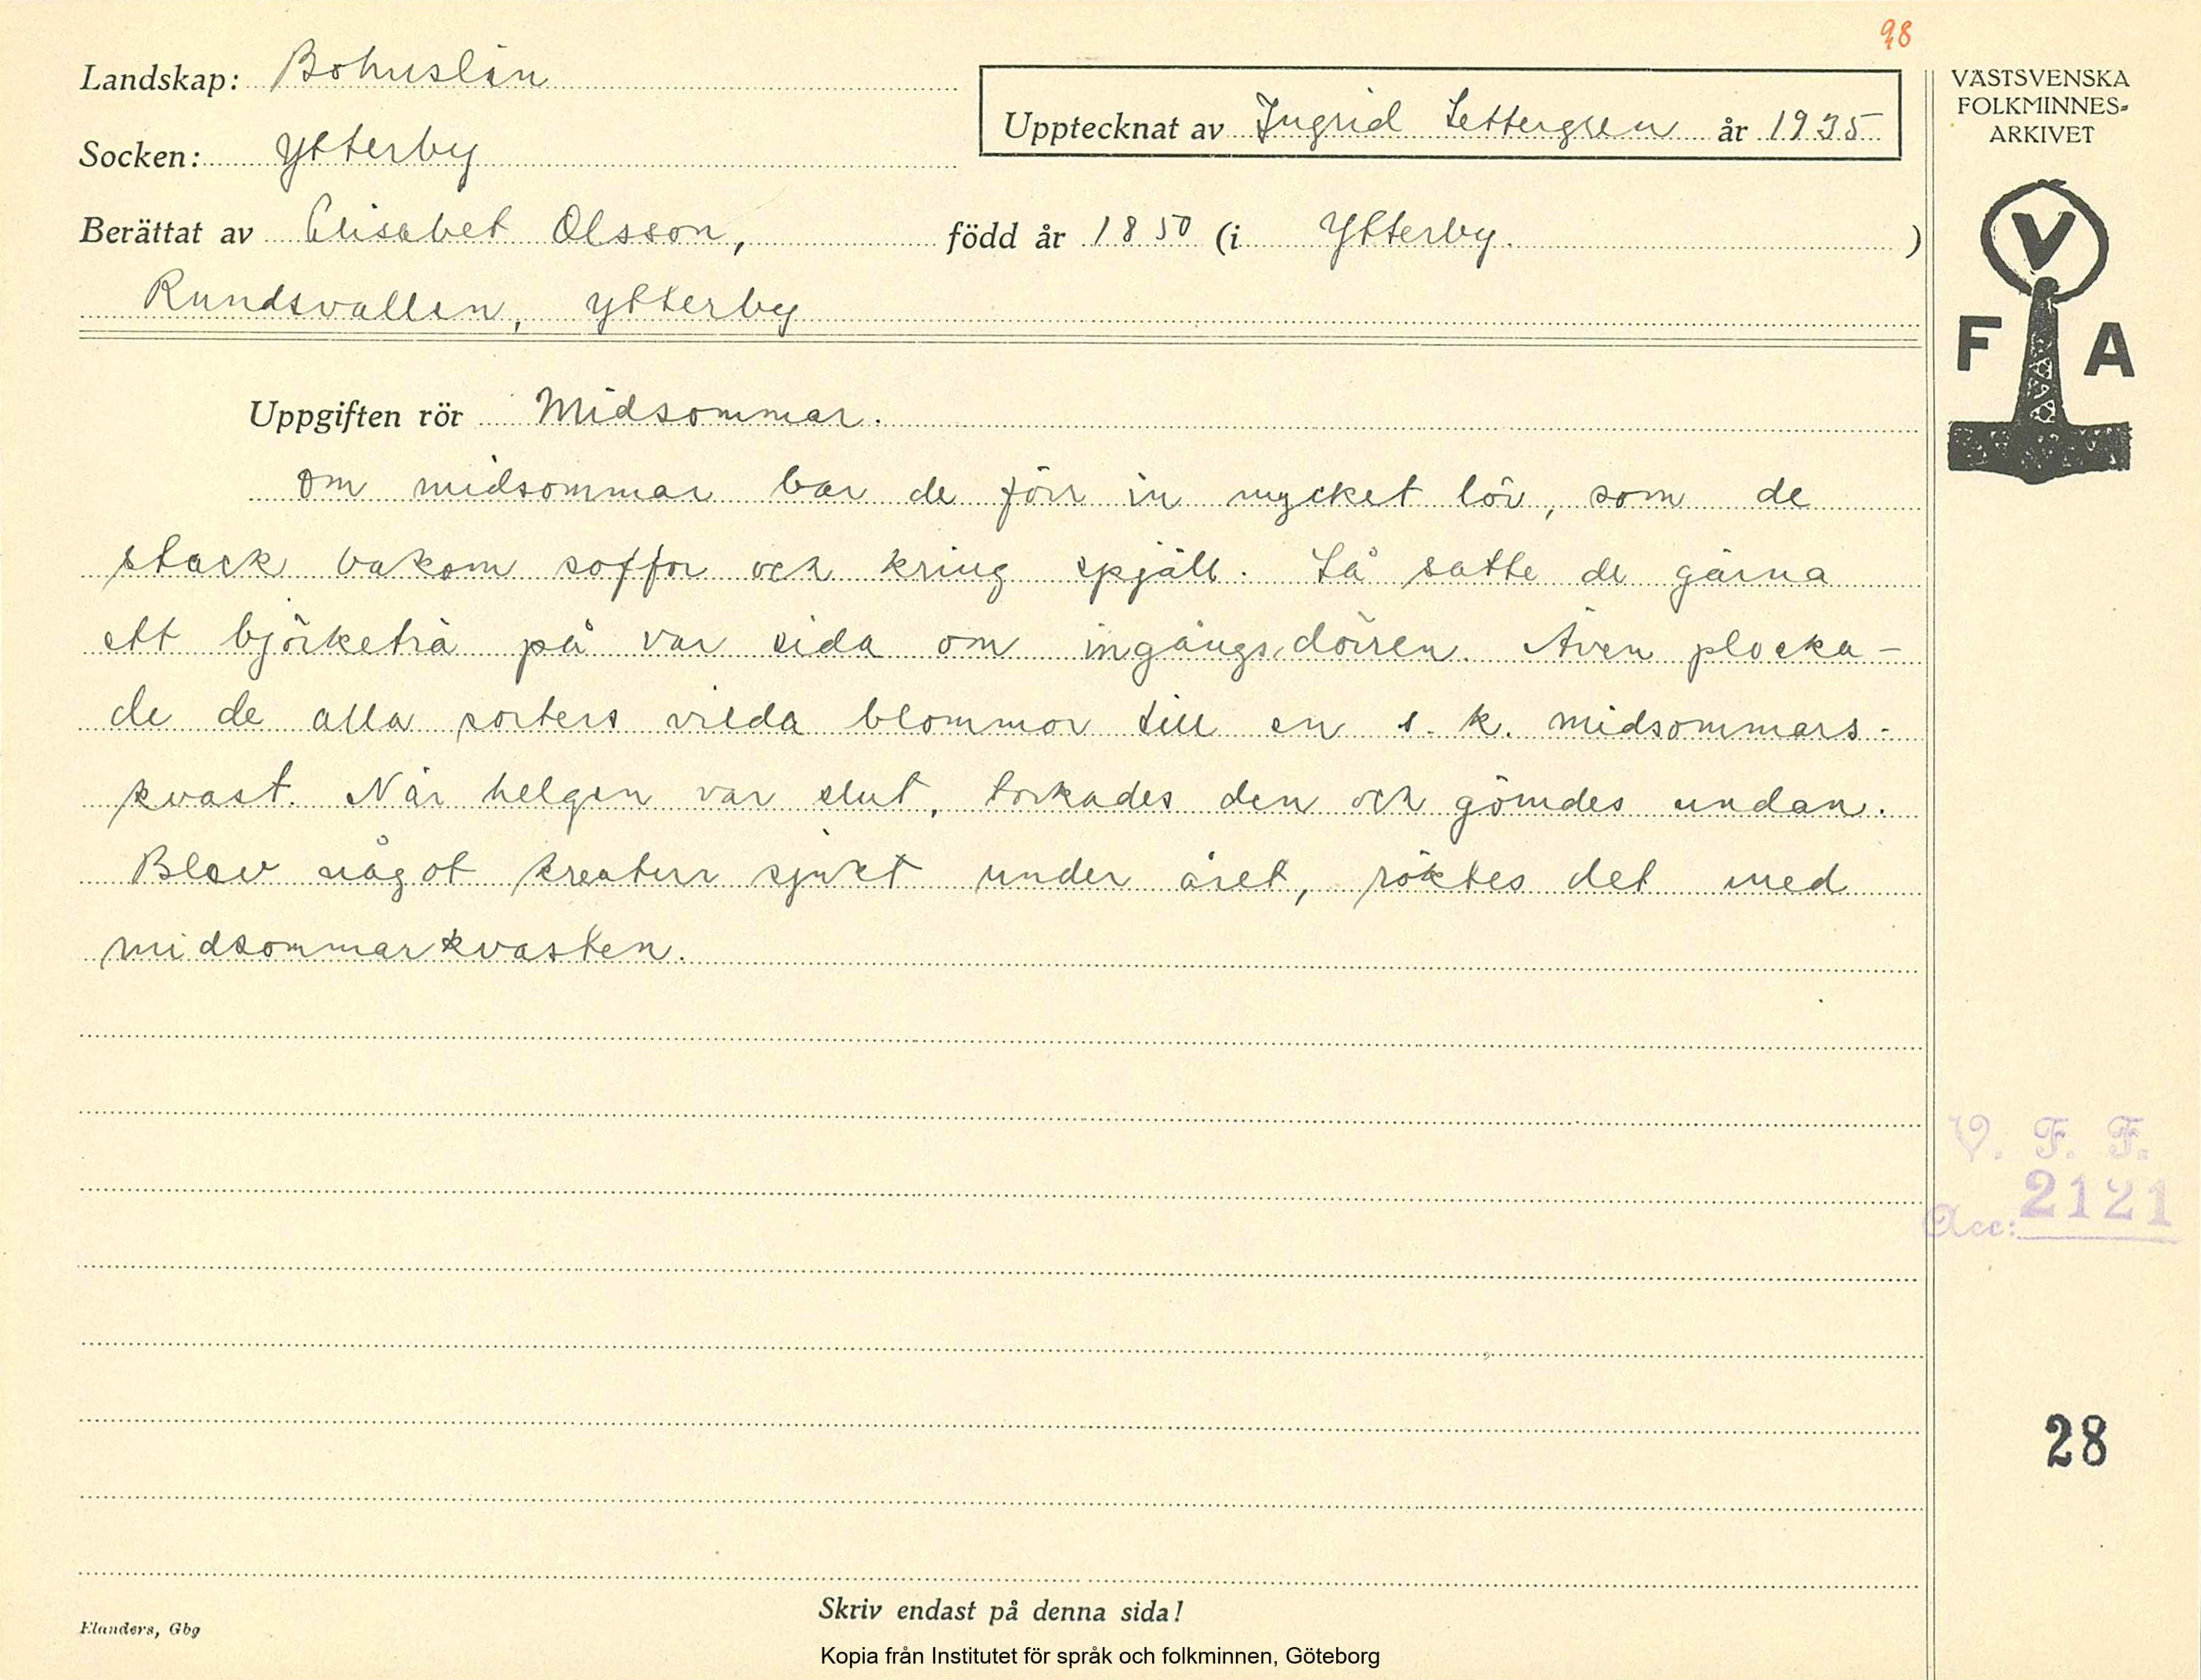 98
Landskap: Bohuslän
Upptecknat av Ingrid Settergren år 1935
Socken: Ytterby
Berättat av Elisabet Olsson, född år 1850 (i Ytterby. )
Rundsvallen, Ytterby
VÄSTSVENSKA
FOLKMINNES-
ARKIVET
V
F A
Uppgiften rör Midsommar.
Om midsommar bar de förr in mycket löv, som de
stack bakom soffor och kring spjäll. Så satte de gärna
ett björketrä på var sida om ingångsdörren. Även plocka-
de de alla sorters vilda blommor till en s. k. midsommars-
kvast. När helgen var slut, torkades den och gömdes undan.
Blev något kreatur sjukt under året, röktes det med
midsommarkvasten.
V. F. F.
Acc: 2121
28
Skriv endast på denna sida!
Elanders, Gbg
Kopia från Institutet för språk och folkminnen, Göteborg